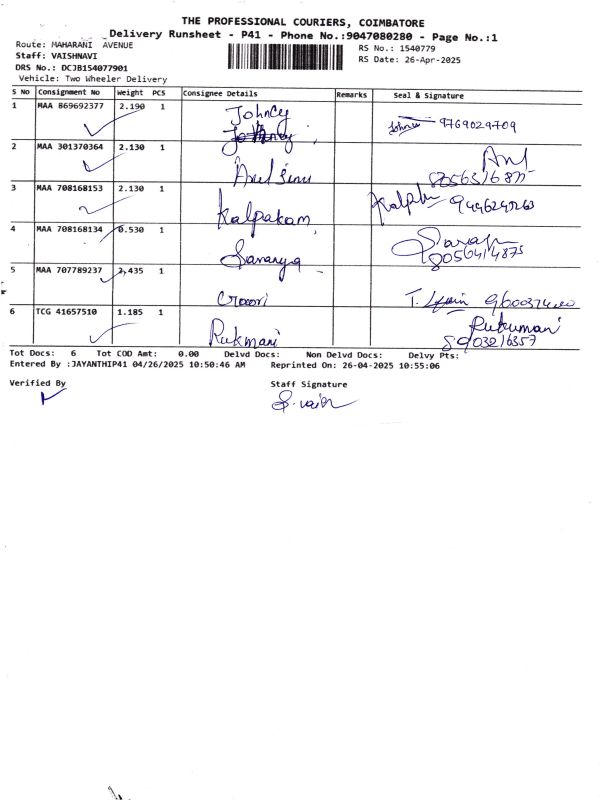 THE PROFESSIONAL COURIERS, COIMBATORE
Delivery Runsheet - P41 - Phone No.:9047080280 - Page No.:1
Route: MAHARANI AVENUE
RS No.: 1540779
Staff: VAISHNAVI
RS Date: 26-Apr-2025
DRS No.: DCJB154077901
Vehicle: Two Wheeler Delivery
S No Consignment No Weight PCS Consignee Details Remarks Seal & Signature
1 MAA 869692377 2.190 1 Johncy 9769029709
2 MAA 301370364 2.130 1
3 MAA 708168153 2.130 1 Kalpakam
4 MAA 708168134 0.530 1 Saranya 8056414875
5 MAA 707789237 2,435 1 Gowri
6 TCG 41657510 1.185 1 Rukmani Rukumani
8903216357
Tot Docs: 6 Tot COD Amt: 0.00 Delvd Docs: Non Delvd Docs: Delvy Pts:
Entered By :JAYANTHIP41 04/26/2025 10:50:46 AM Reprinted On: 26-04-2025 10:55:06
Verified By Staff Signature